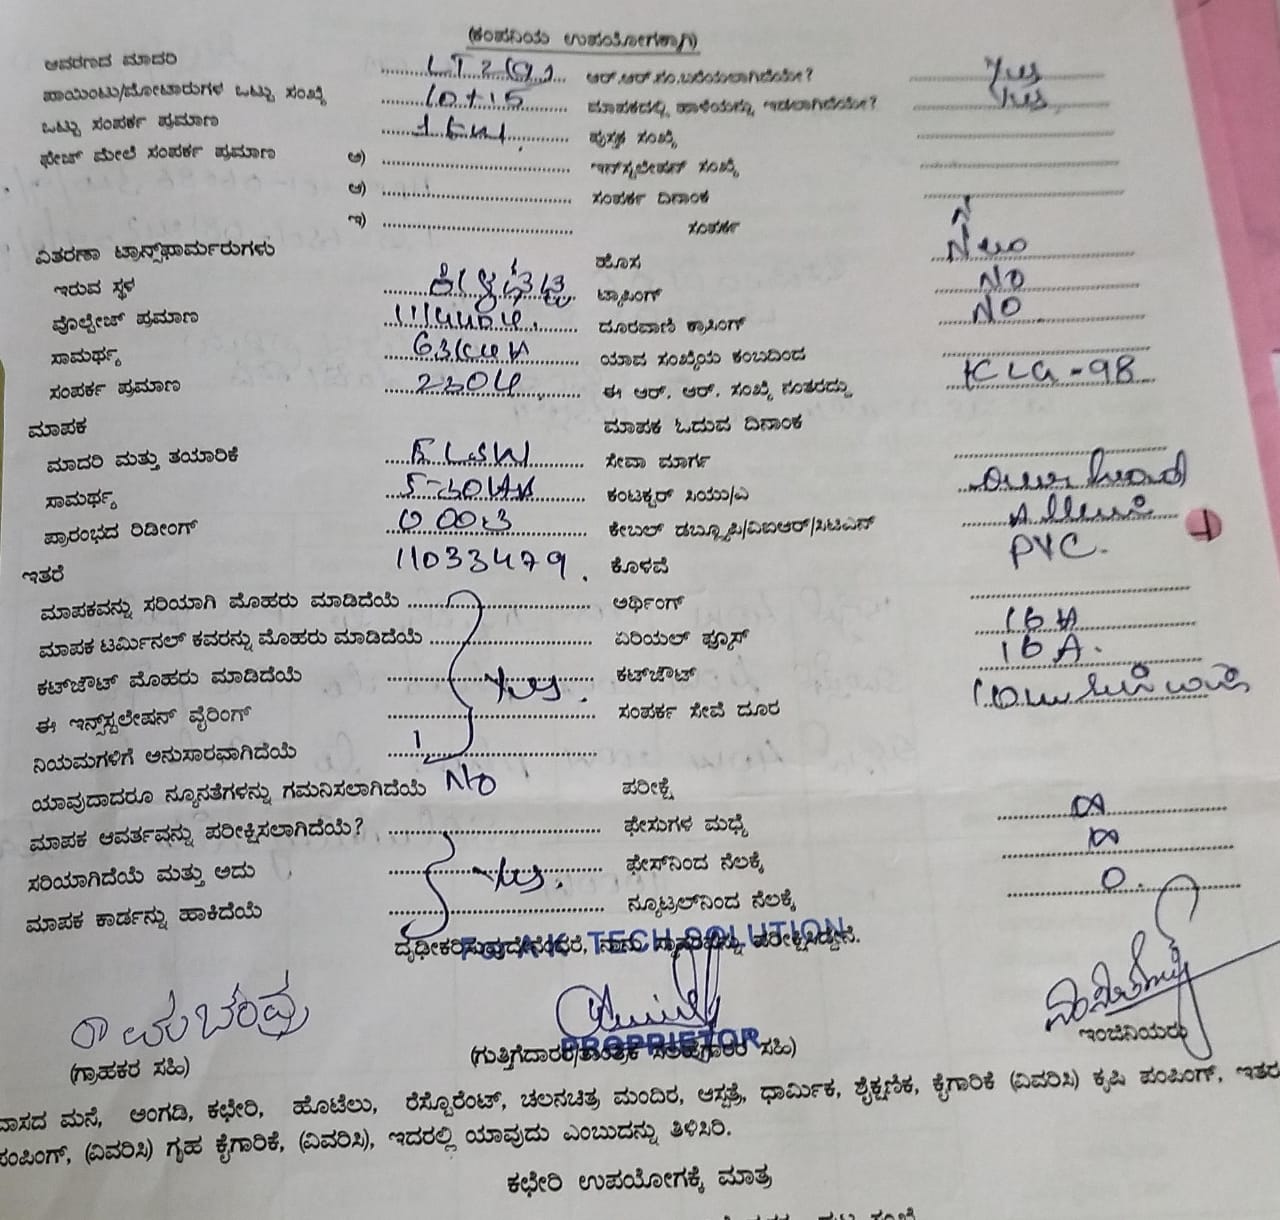 (ಕಂಪನಿಯ ಉಪಯೋಗಕ್ಕಾಗಿ)
ಆವರಣದ ಮಾದರಿ LT2 ಆರ್.ಆರ್.ಸಂ.ಬರೆಯಲಾಗಿದೆಯೇ? Yes
ಪಾಯಿಂಟು/ಮೋಟಾರುಗಳ ಒಟ್ಟು ಸಂಖ್ಯೆ 10+15 ಮಾಪಕದಲ್ಲಿ ಹಾಳೆಯನ್ನು ಇಡಲಾಗಿದೆಯೇ? Yes
ಒಟ್ಟು ಸಂಪರ್ಕ ಪ್ರಮಾಣ 1 KW. ಪುಸ್ತಕ ಸಂಖ್ಯೆ
ಫೇಜ್ ಮೇಲೆ ಸಂಪರ್ಕ ಪ್ರಮಾಣ ಅ) ಇನ್‌ಸ್ಟಲೇಷನ್ ಸಂಖ್ಯೆ
ಆ) ಸಂಪರ್ಕ ದಿನಾಂಕ
ಇ) ಸಂಪರ್ಕ
ವಿತರಣಾ ಟ್ರಾನ್ಸ್‌ಫಾರ್ಮರುಗಳು ಹೊಸ New
ಇರುವ ಸ್ಥಳ ಟ್ಯಾಪಿಂಗ್ NO
ವೋಲ್ಟೇಜ್ ಪ್ರಮಾಣ ದೂರವಾಣಿ ಕ್ರಾಸಿಂಗ್ NO
ಸಾಮರ್ಥ್ಯ 63KVA ಯಾವ ಸಂಖ್ಯೆಯ ಕಂಬದಿಂದ
ಸಂಪರ್ಕ ಪ್ರಮಾಣ 230V. ಈ ಆರ್. ಆರ್. ಸಂಖ್ಯೆ ನಂತರದ್ದು KLG-98
ಮಾಪಕ ಮಾಪಕ ಓದುವ ದಿನಾಂಕ
ಮಾದರಿ ಮತ್ತು ತಯಾರಿಕೆ ಸೇವಾ ಮಾರ್ಗ Over head
ಸಾಮರ್ಥ್ಯ 5-30 ಕಂಟಕ್ಟರ್ ಸಿಯು/ಎ
ಪ್ರಾರಂಭದ ರಿಡೀಂಗ್ 0003 ಕೇಬಲ್ ಡಬ್ಲ್ಯೂಪಿ/ವಿಐಆರ್/ಸಿಟಿಎಸ್ PVC.
ಇತರೆ 11033479. ಕೊಳವೆ
ಮಾಪಕವನ್ನು ಸರಿಯಾಗಿ ಮೊಹರು ಮಾಡಿದೆಯೆ ಅರ್ಥಿಂಗ್
ಮಾಪಕ ಟರ್ಮಿನಲ್ ಕವರನ್ನು ಮೊಹರು ಮಾಡಿದೆಯೆ ಏರಿಯಲ್ ಫ್ಯೂಸ್ 16A
ಕಟ್‌ಔಟ್ ಮೊಹರು ಮಾಡಿದೆಯೆ Yes. ಕಟ್‌ಔಟ್ 16A.
ಈ ಇನ್‌ಸ್ಟಲೇಷನ್ ವೈರಿಂಗ್ ಸಂಪರ್ಕ ಸೇವೆ ದೂರ
ನಿಯಮಗಳಿಗೆ ಅನುಸಾರವಾಗಿದೆಯೆ
ಯಾವುದಾದರೂ ನ್ಯೂನತೆಗಳನ್ನು ಗಮನಿಸಲಾಗಿದೆಯೆ No ಪರೀಕ್ಷೆ
ಮಾಪಕ ಆವರ್ತವನ್ನು ಪರೀಕ್ಷಿಸಲಾಗಿದೆಯೆ? ಫೇಸುಗಳ ಮಧ್ಯೆ ∞
ಸರಿಯಾಗಿದೆಯೆ ಮತ್ತು ಅದು Yes. ಫೇಸ್‌ನಿಂದ ನೆಲಕ್ಕೆ ∞
ಮಾಪಕ ಕಾರ್ಡನ್ನು ಹಾಕಿದೆಯೆ ನ್ಯೂಟ್ರಲ್‌ನಿಂದ ನೆಲಕ್ಕೆ 0.
ದೃಢೀಕರಿಸುವುದೇನೆಂದರೆ, ನಾನು ಸ್ಥಾವರವನ್ನು ಪರೀಕ್ಷಿಸಿದ್ದೇನೆ.
TECH SOLUTION
ರಾಮಚಂದ್ರ
PROPRIETOR
(ಗ್ರಾಹಕರ ಸಹಿ) (ಗುತ್ತಿಗೆದಾರರ/ತಾಂತ್ರಿಕ ಸಲಹೆಗಾರರ ಸಹಿ) ಇಂಜಿನಿಯರು
ವಾಸದ ಮನೆ, ಅಂಗಡಿ, ಕಛೇರಿ, ಹೊಟೆಲು, ರೆಸ್ಟೊರೆಂಟ್, ಚಲನಚಿತ್ರ ಮಂದಿರ, ಆಸ್ಪತ್ರೆ, ಧಾರ್ಮಿಕ, ಶೈಕ್ಷಣಿಕ, ಕೈಗಾರಿಕೆ (ವಿವರಿಸಿ) ಕೃಷಿ ಪಂಪಿಂಗ್, ಇತರ
ಪಂಪಿಂಗ್, (ವಿವರಿಸಿ) ಗೃಹ ಕೈಗಾರಿಕೆ, (ವಿವರಿಸಿ), ಇದರಲ್ಲಿ ಯಾವುದು ಎಂಬುದನ್ನು ತಿಳಿಸಿರಿ.
ಕಛೇರಿ ಉಪಯೋಗಕ್ಕೆ ಮಾತ್ರ